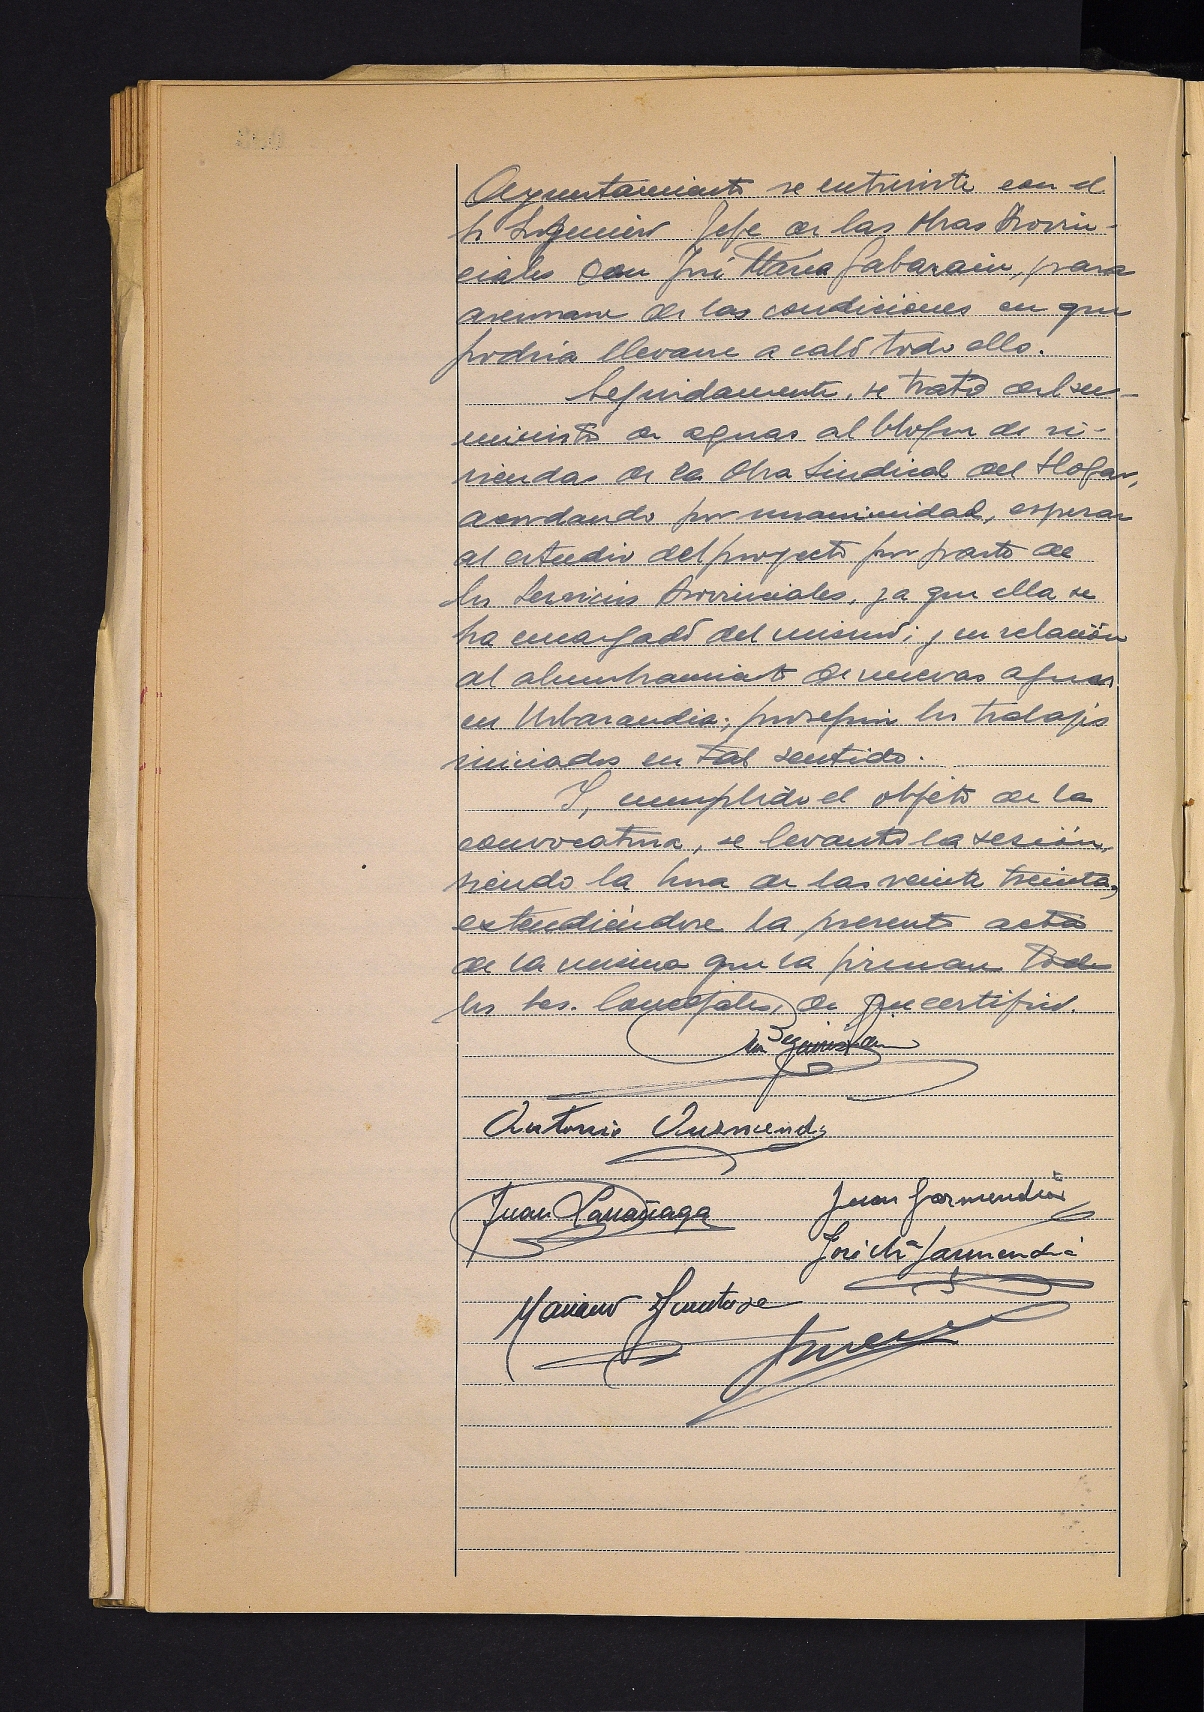 Ayuntamiento se entreviste con el
Sr Ingeniero Jefe de las Obras Provin-
ciales Don José Maria Gabarain, para
asesorarse de las condiciones en que
podria llevarse a cabo todo ello.
Seguidamente, se trató del su-
ministro de aguas al bloque de vi-
viendas de la Obra Sindical del Hogar,
acordando por unanimidad, esperar
al estudio del proyecto por parte de
los Servicios Provinciales, ya que ella se
ha encargado del mismo; y en relación
al alumbramiento de nuevas aguas
en Urbarandia; proseguir los trabajos
iniciados en tal sentido.
Y, cumplido el objeto de la
convocatoria, se levantó la sesión,
siendo la hora de las veinte treinta,
extendiéndose la presente acta
de la misma que la firman todos
los Sres. Concejales, de que certifico.
Antonio Auzmendi
Juan Larrañaga
Juan Garmendia
José Mª Garmendia
Mariano